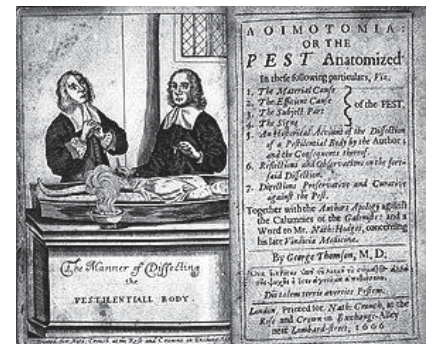 The Manner of Dissecting
the
PESTILENTIALL BODY.
Printed for Nath. Crouch at the Rose and Crowne in Exchang Ally
ΛΟΙΜΟΤΟΜΙΑ:
OR THE
PEST Anatomized
In these following particulars, Viz.
1. The Material Cause
2. The Efficient Cause
3. The Subject Part
4. The Signs
of the PEST,
5. An Historical Account of the Dissection
of a Pestilential Body by the Author;
and the Consequents thereof.
6. Reflections and Observations on the fore-
said Dissection.
7. Directions Preservative and Curative
against the Pest.
Together with the Authors Apology against
the Calumnies of the Galenists: and a
Word to Mr. Nath: Hodges, concerning
his late Vindiciæ Medicinæ.
By George Thomson, M. D.
Dictalem terris avertite Pestem.
London, Printed for Nath: Crouch, at the
Rose and Crown in Exchange-Alley
near Lombard-street, 1666